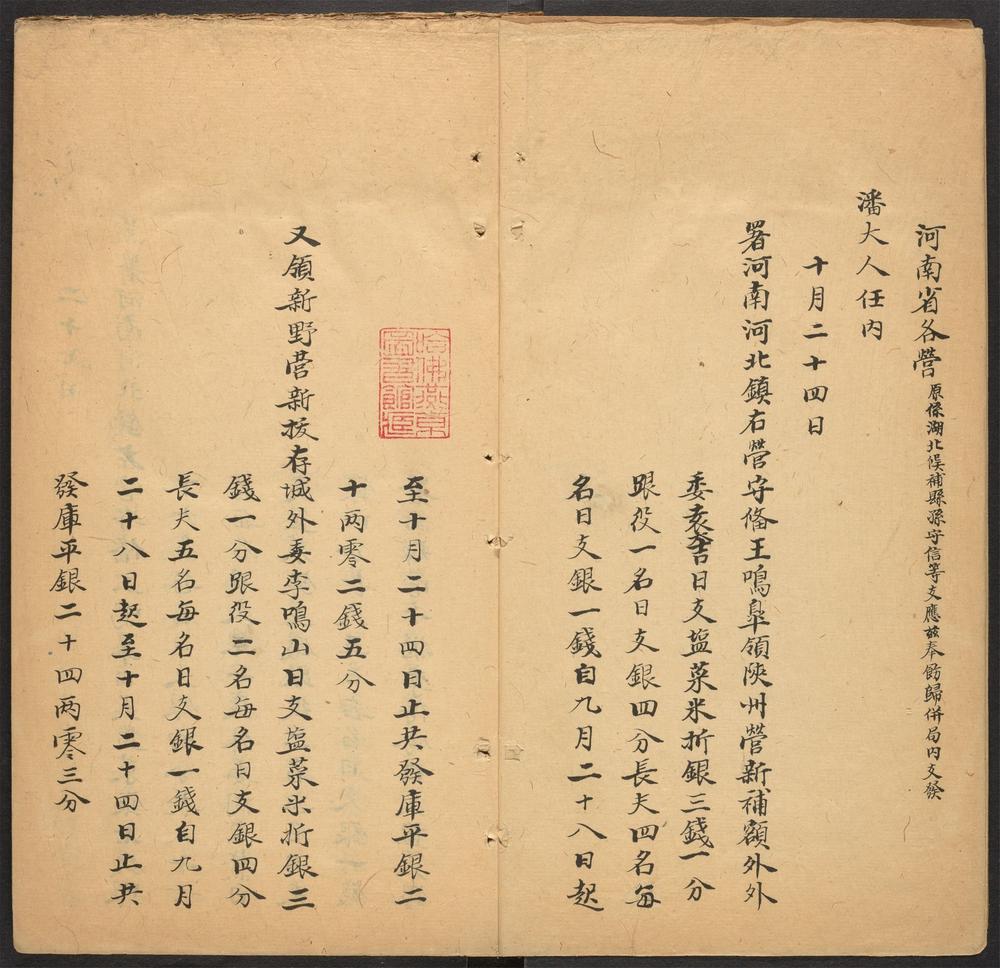 河南省各營原係湖北候補縣孫守信等支應茲奉飭歸併局內支發
潘大人任內
十月二十四日
署河南河北鎮右營守俻王鳴臯領陝州營新補額外外
委袁吉日支盐菜米折銀三錢一分
跟役一名日支銀四分長夫四名每
名日支銀一錢自九月二十八日起
至十月二十四日止共發庫平銀二
十两零二錢五分
又領新野營新拔存城外委李鳴山日支盐菜米折銀三
錢一分跟役二名每名日支銀四分
長夫五名每名日支銀一錢自九月
二十八日起至十月二十四日止共
發庫平銀二十四两零三分
哈佛燕京
圖書館珍